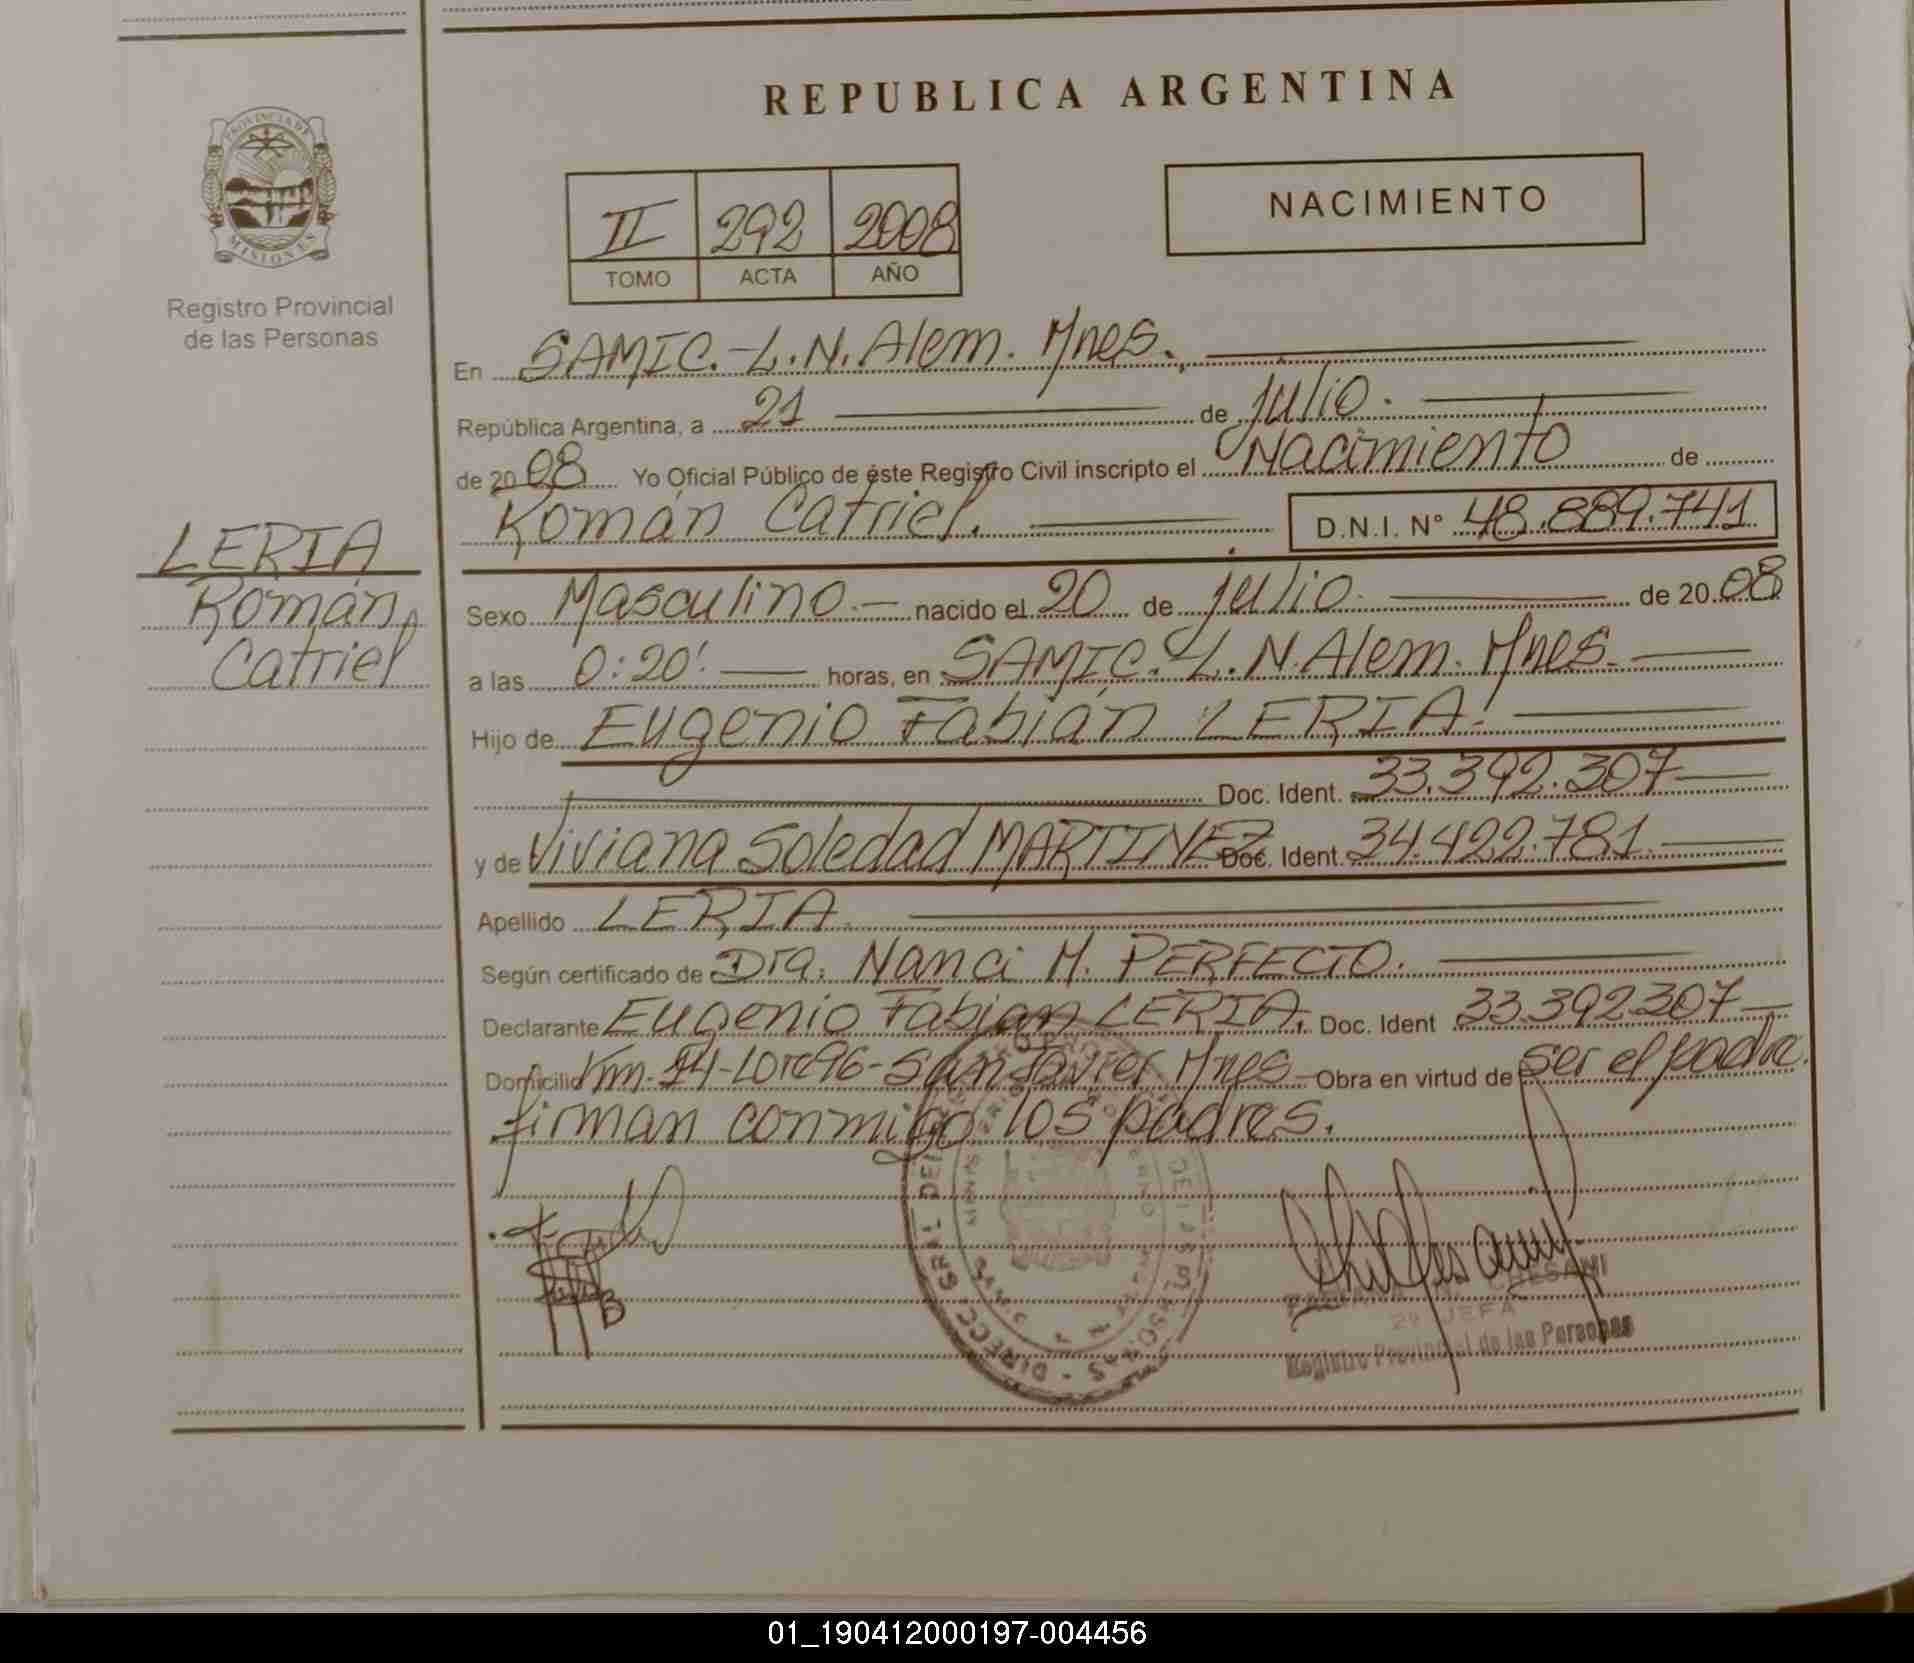 REPUBLICA ARGENTINA
PROVINCIA DE
MISIONES
Registro Provincial
de las Personas
II 292 2008
TOMO ACTA AÑO
NACIMIENTO
En SAMIC.-L.N.Alem. Mnes.
República Argentina, a 21 de julio.
de 2008 Yo Oficial Público de éste Registro Civil inscripto el Nacimiento de
Román Catriel. D.N.I. N° 48.889.741
LERIA
Román
Catriel
Sexo Masculino.- nacido el 20 de julio. de 2008
a las 0:20'. horas, en SAMIC.-L.N.Alem. Mnes.
Hijo de Eugenio Fabián LERIA.
Doc. Ident. 33.392.307
y de Viviana Soledad MARTINEZ Doc. Ident. 34.422.781.
Apellido LERIA.
Según certificado de Dra. Nanci M. PERFECTO.
Declarante Eugenio Fabian LERIA. Doc. Ident 33.392.307
Domicilio Km.14-Lote96-San Javier Mnes- Obra en virtud de ser el padre.
firman conmigo los padres.
CHESANI
2º JEFA
Registro Provincial de las Personas
01_190412000197-004456